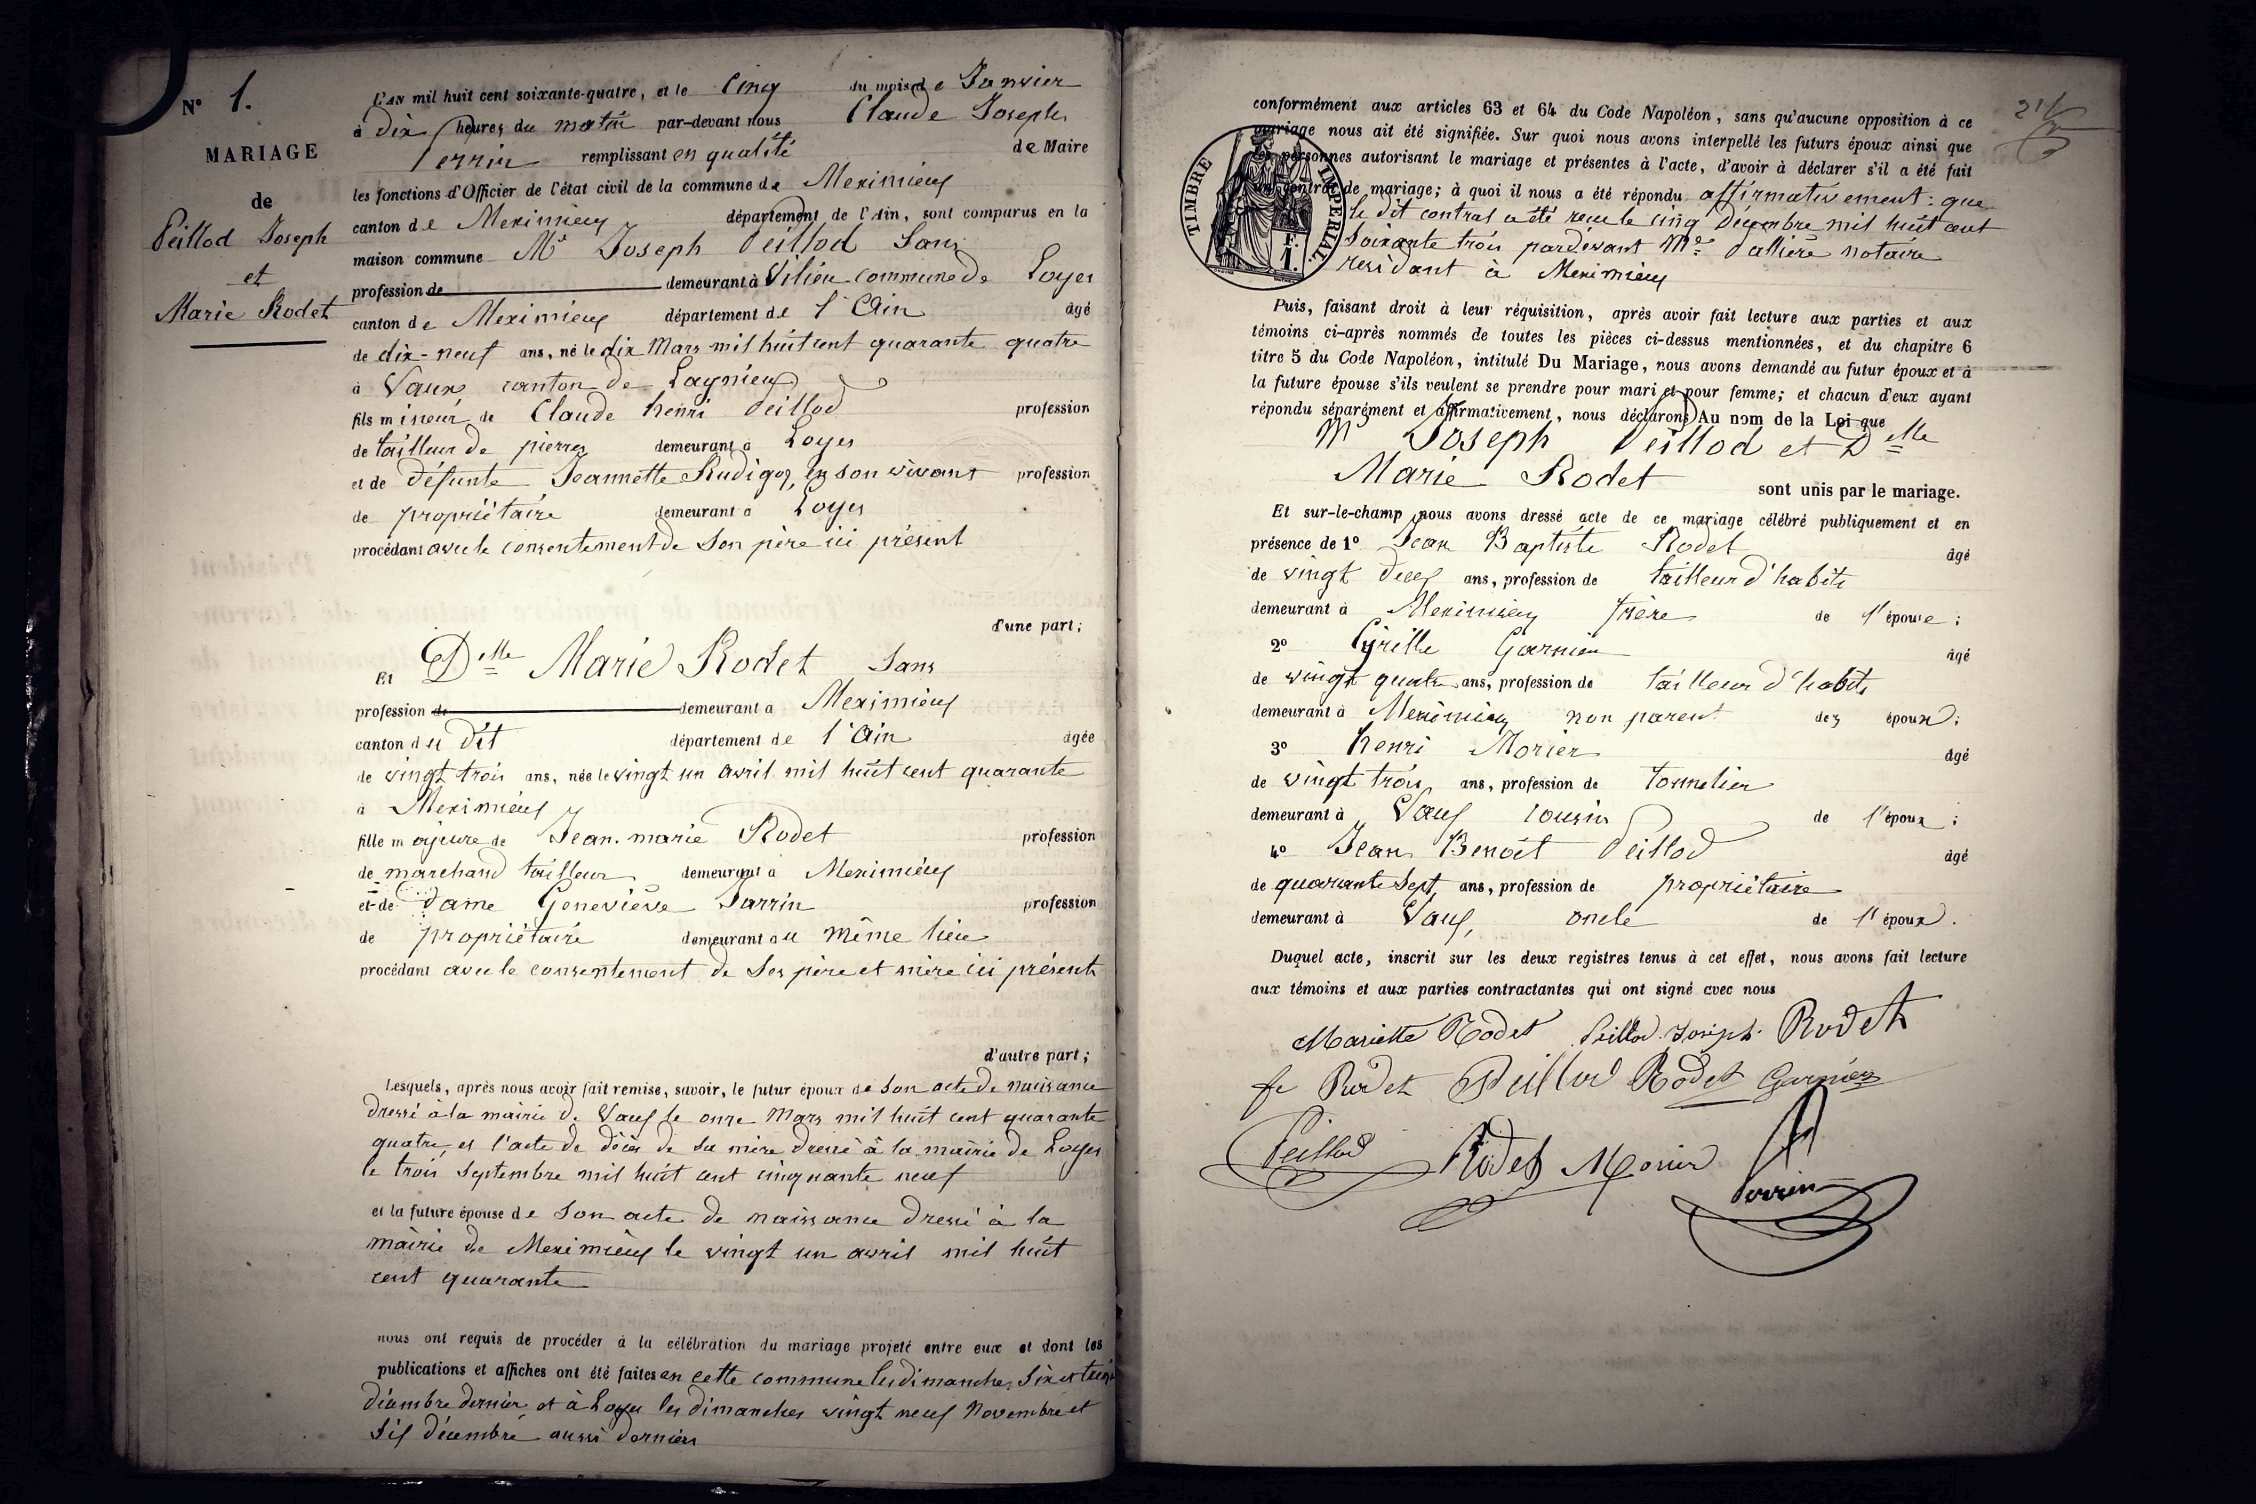 N° 1.
MARIAGE
de
Peillod Joseph
et
Marie Rodet
L'AN mil huit cent soixante-quatre, et le cinq du mois de Janvier
à dix heures du matin par-devant nous Claude Joseph
Perrin remplissant en qualité de Maire
les fonctions d'Officier de l'état civil de la commune de Meximieux
canton de Meximieux département de l'Ain, sont comparus en la
maison commune Mr Joseph Peillod Sans
profession de demeurant à Vilieu commune de Loyes
canton de Meximieux département de l'Ain âgé
de dix-neuf ans, né le dix Mars mil huit cent quarante quatre
à Vaux canton de Lagnieux
fils mineur de Claude henri Peillod profession
de tailleur de pierres demeurant à Loyes
et de défunte Jeannette Rudigoz, en son vivant profession
de propriétaire demeurant à Loyes
procédant avec le consentement de son père ici présent
d'une part;
Et Delle Marie Rodet Sans
profession de demeurant à Meximieux
canton du dit département de l'Ain âgée
de vingt trois ans, née le vingt un avril mil huit cent quarante
à Meximieux
fille majeure de Jean-marie Rodet profession
de marchand tailleur demeurant à Meximieux
et de Dame Geneviève Jarrin profession
de propriétaire demeurant au même lieu
procédant avec le consentement de ses père et mère ici présents
d'autre part;
Lesquels, après nous avoir fait remise, savoir, le futur époux de son acte de naissance
dressé à la mairie de Vaux le onze Mars mil huit cent quarante
quatre, et l'acte de décès de sa mère dressé à la mairie de Loyes
le trois Septembre mil huit cent cinquante neuf
et la future épouse de son acte de naissance dressé à la
mairie de Meximieux le vingt un avril mil huit
cent quarante
nous ont requis de procéder à la célébration du mariage projeté entre eux et dont les
publications et affiches ont été faites en cette commune les dimanches six et treize
décembre dernier et à Loyes les dimanches vingt neuf Novembre et
six décembre aussi derniers
conformément aux articles 63 et 64 du Code Napoléon, sans qu'aucune opposition à ce
mariage nous ait été signifiée. Sur quoi nous avons interpellé les futurs époux ainsi que
les personnes autorisant le mariage et présentes à l'acte, d'avoir à déclarer s'il a été fait
un contrat de mariage; à quoi il nous a été répondu affirmativement: que
le dit contrat a été reçu le cinq Décembre mil huit cent
Soixante trois pardevant Me. Dallière notaire
residant à Meximieux
TIMBRE IMPERIAL
F.
1.
Puis, faisant droit à leur réquisition, après avoir fait lecture aux parties et aux
témoins ci-après nommés de toutes les pièces ci-dessus mentionnées, et du chapitre 6
titre 5 du Code Napoléon, intitulé Du Mariage, nous avons demandé au futur époux et à
la future épouse s'ils veulent se prendre pour mari et pour femme; et chacun d'eux ayant
répondu séparément et affirmativement, nous déclarons Au nom de la Loi que
Mr Joseph Peillod et Delle
Marie Rodet sont unis par le mariage.
Et sur-le-champ nous avons dressé acte de ce mariage célébré publiquement et en
présence de 1° Jean Baptiste Rodet âgé
de vingt deux ans, profession de tailleur d'habits
demeurant à Meximieux frère de l'épouse;
2° Cyrille Garnier âgé
de vingt quatre ans, profession de tailleur d'habits
demeurant à Meximieux non parent des époux;
3° henri Morier âgé
de vingt trois ans, profession de tonnelier
demeurant à Vaux cousin de l'époux;
4° Jean Benoit Peillod âgé
de quarante Sept ans, profession de propriétaire
demeurant à Vaux, oncle de l'époux.
Duquel acte, inscrit sur les deux registres tenus à cet effet, nous avons fait lecture
aux témoins et aux parties contractantes qui ont signé avec nous
Mariette Rodet Peillod Joseph Rodet
fe Rodet Peillod Rodet Garnier
Peillod Rodet Morier
Perrin